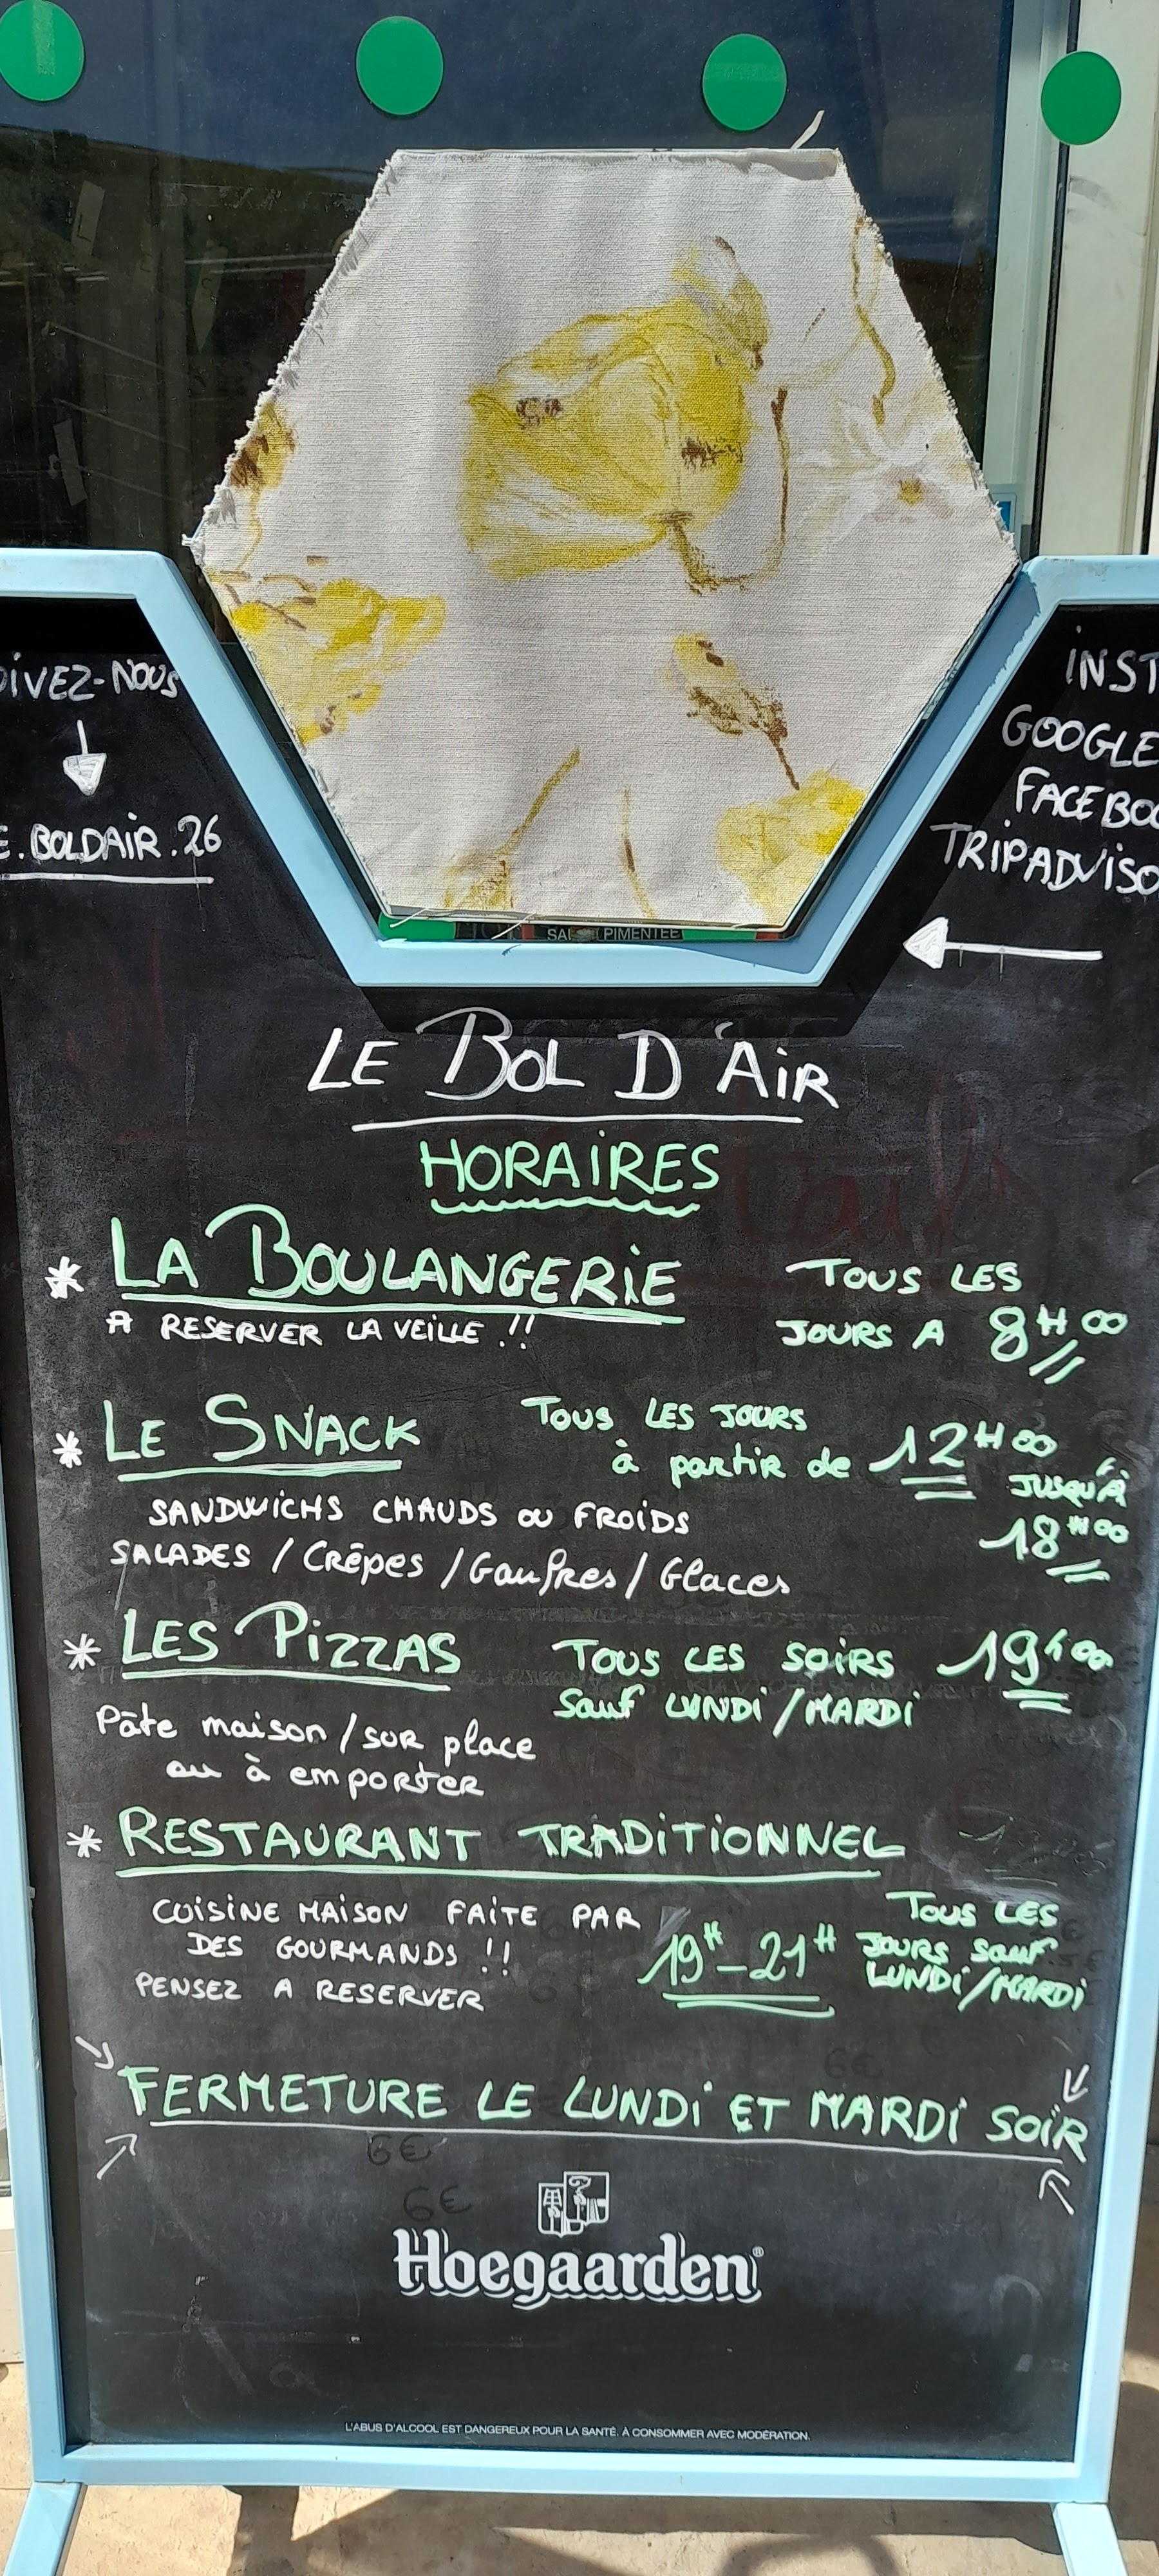 SAUCE PIMENTÉE
UIVEZ-NOUS
E.BOLDAIR.26
INST
GOOGLE
FACEBOO
TRIPADVISO
LE BOL D'AIR
HORAIRES
* LA BOULANGERIE TOUS LES
A RESERVER LA VEILLE !! JOURS A 8H00
* LE SNACK TOUS LES JOURS
à partir de 12H00
JUSQU'À
SANDWICHS CHAUDS OU FROIDS 18H00
SALADES / Crêpes / Gaufres / Glaces
* LES PIZZAS TOUS LES SOIRS 19h00
Sauf LUNDI / MARDI
Pâte maison / sur place
ou à emporter
* RESTAURANT TRADITIONNEL
CUISINE MAISON FAITE PAR TOUS LES
DES GOURMANDS !! 19H-21H JOURS sauf
PENSEZ A RESERVER LUNDI/MARDI
FERMETURE LE LUNDI ET MARDI SOIR
6€
6€
Hoegaarden®
L'ABUS D'ALCOOL EST DANGEREUX POUR LA SANTÉ. À CONSOMMER AVEC MODÉRATION.